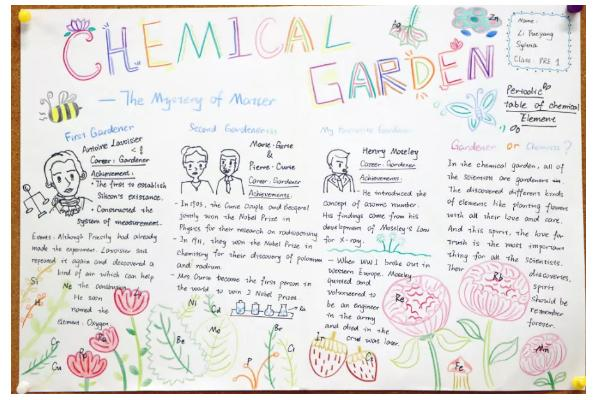 CHEMICAL
GARDEN
— The Mystery of Matter
Name:
Li
Sylvia
Class: PRE 1
Periodic
table of chemical
Element
Ag
Zn
First Gardener
Antoine Lavoisier
Career: Gardener
Achievements:
- The first to establish
Silicon's existance.
- Constructed the
system of measurement.
Events: Although Priestly had already
made the experiment. Lavoisier still
repeated it again and discovered a
kind of air which can help
the combustion.
He soon
named the
element: Oxygen.
Si
Ne
H
Cr
Cu
Second Gardeners
Marie-Curie
&
Pierre-Curie
Career: Gardener
Achievements:
- In 1903, the Curie Couple and Becquerel
jointly won the Nobel Prize in
Physics for their research on radioactivity
- In 1911, they won the Nobel Prize in
chemistry for their discovery of polonium
and radium.
- Mrs. Curie became the first person in
the world to win 2 Nobel Prizes.
Ni
Cd
Ra
Be
Mo
Br
Cl
P
My Favourite Gardener
Henry Moseley
Career: Gardener
Achievements:
- He introduced the
concept of atomic number.
His findings come from his
development of Moseley's Law
for X-ray.
- When WW1 broke out in
western Europe. Moseley
quitted and
volunteered to
be an engineer
in the army
and died in the
cruel war later.
Ir
Cs
Gardener or Chemist?
In the chemical garden, all of
the scientists are gardeners.
The discovered different kinds
of elements like planting flowers
with all their love and care.
And this spirit, the love for
Truth is the most important
thing for all the scientists.
Their discoveries,
spirit
should be
remember
forever.
Re
Rb
Fe
Mn